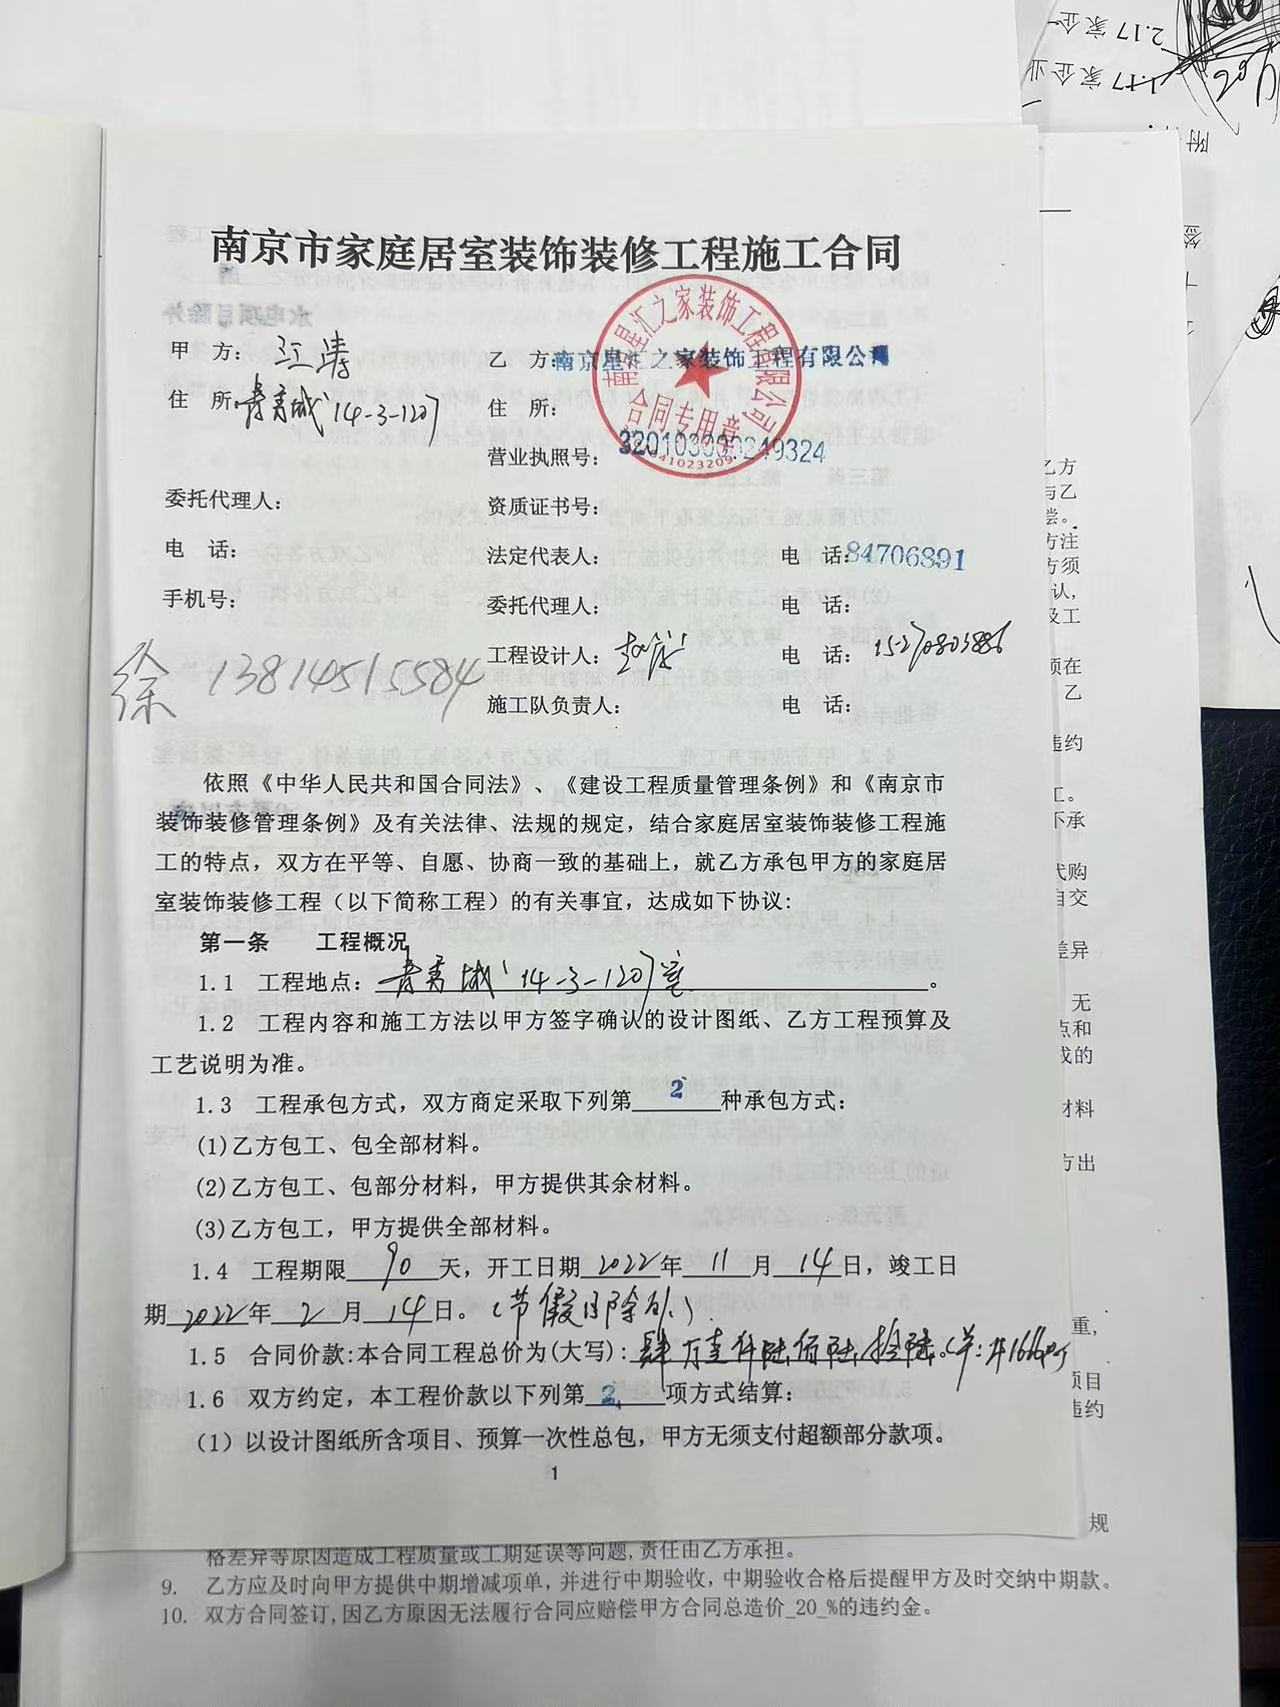 2.17家企
1.17家企业
附
南京市家庭居室装饰装修工程施工合同
甲 方：江涛
乙 方：南京星汇之家装饰工程有限公司
南京星汇之家装饰工程有限公司
合同专用章
住 所：青青城 14-3-1207
住 所：
营业执照号：
委托代理人：
资质证书号：
电 话：
法定代表人：
电 话：84706891
手机号：
委托代理人：
电 话：
工程设计人：
电 话：
徐 13814515584
施工队负责人：
电 话：
依照《中华人民共和国合同法》、《建设工程质量管理条例》和《南京市
装饰装修管理条例》及有关法律、法规的规定，结合家庭居室装饰装修工程施
工的特点，双方在平等、自愿、协商一致的基础上，就乙方承包甲方的家庭居
室装饰装修工程（以下简称工程）的有关事宜，达成如下协议：
第一条 工程概况
1.1 工程地点：青青城 14-3-1207室。
1.2 工程内容和施工方法以甲方签字确认的设计图纸、乙方工程预算及
工艺说明为准。
1.3 工程承包方式，双方商定采取下列第2种承包方式：
(1)乙方包工、包全部材料。
(2)乙方包工、包部分材料，甲方提供其余材料。
(3)乙方包工，甲方提供全部材料。
1.4 工程期限90天，开工日期2022年11月14日，竣工日
期2022年2月14日。（节假日除外）
1.5 合同价款：本合同工程总价为(大写)：肆万壹仟陆佰陆拾陆
1.6 双方约定，本工程价款以下列第2项方式结算：
（1）以设计图纸所含项目、预算一次性总包，甲方无须支付超额部分款项。
1
乙方
与乙
偿。
方注
方须
认，
及工
须在
乙
违约
工。
不承
代购
自交
差异
无
点和
成的
材料
方出
重，
项目
违约
规
格差异等原因造成工程质量或工期延误等问题，责任由乙方承担。
9. 乙方应及时向甲方提供中期增减项单，并进行中期验收，中期验收合格后提醒甲方及时交纳中期款。
10. 双方合同签订，因乙方原因无法履行合同应赔偿甲方合同总造价_20_%的违约金。